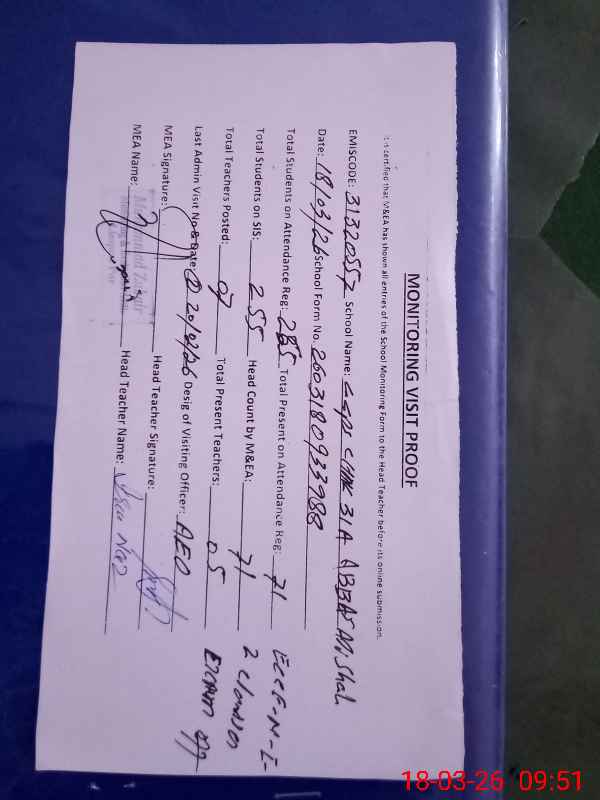 MONITORING VISIT PROOF
It is certified that M&EA has shown all entries of the School Monitoring Form to the Head Teacher before its online submission.
EMISCODE: 31320557 School Name: GGPS CHAK 31A
Date: 18/03/26 School Form No. 2603180933988
Total Students on Attendance Reg: 255 Total Present on Attendance Reg: 71
Total Students on SIS: 255 Head Count by M&EA: 71
Total Teachers Posted: 07 Total Present Teachers: 05
Last Admin Visit No & Date 20/02/26 Desig of Visiting Officer: AEO
MEA Signature: Head Teacher Signature:
MEA Name: Head Teacher Name:
ECCE-N-I-
2 classes
18-03-26 09:51